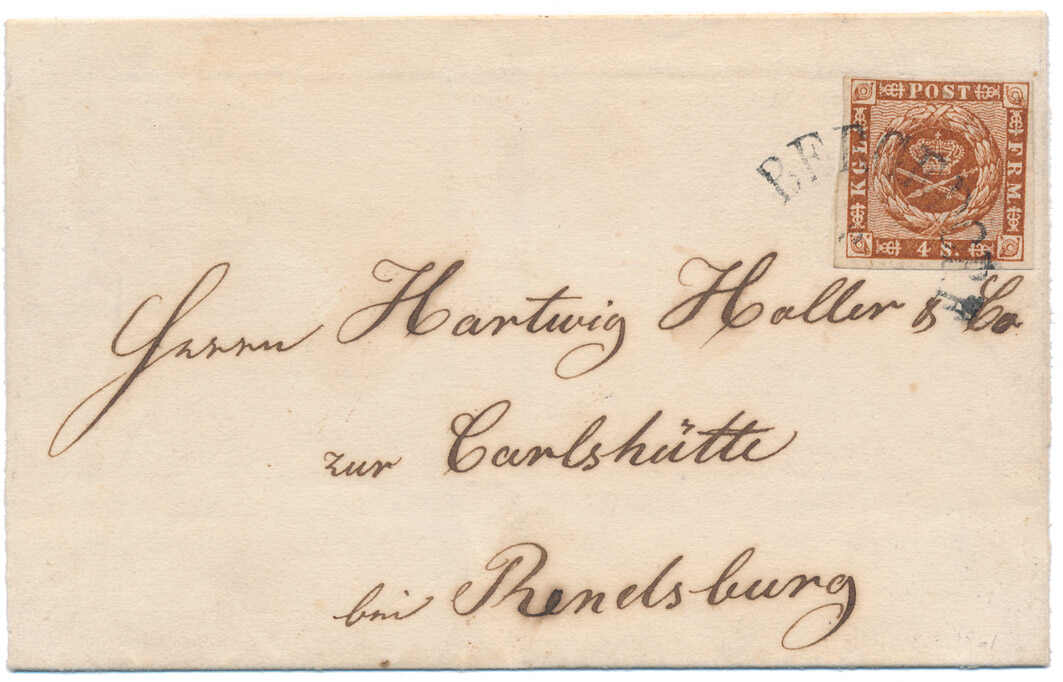 POST
KGL
FRM
4 S.
BERGEDORF
Herrn Hartwig Holler & Co
zur Carlshütte
bei Rendsburg